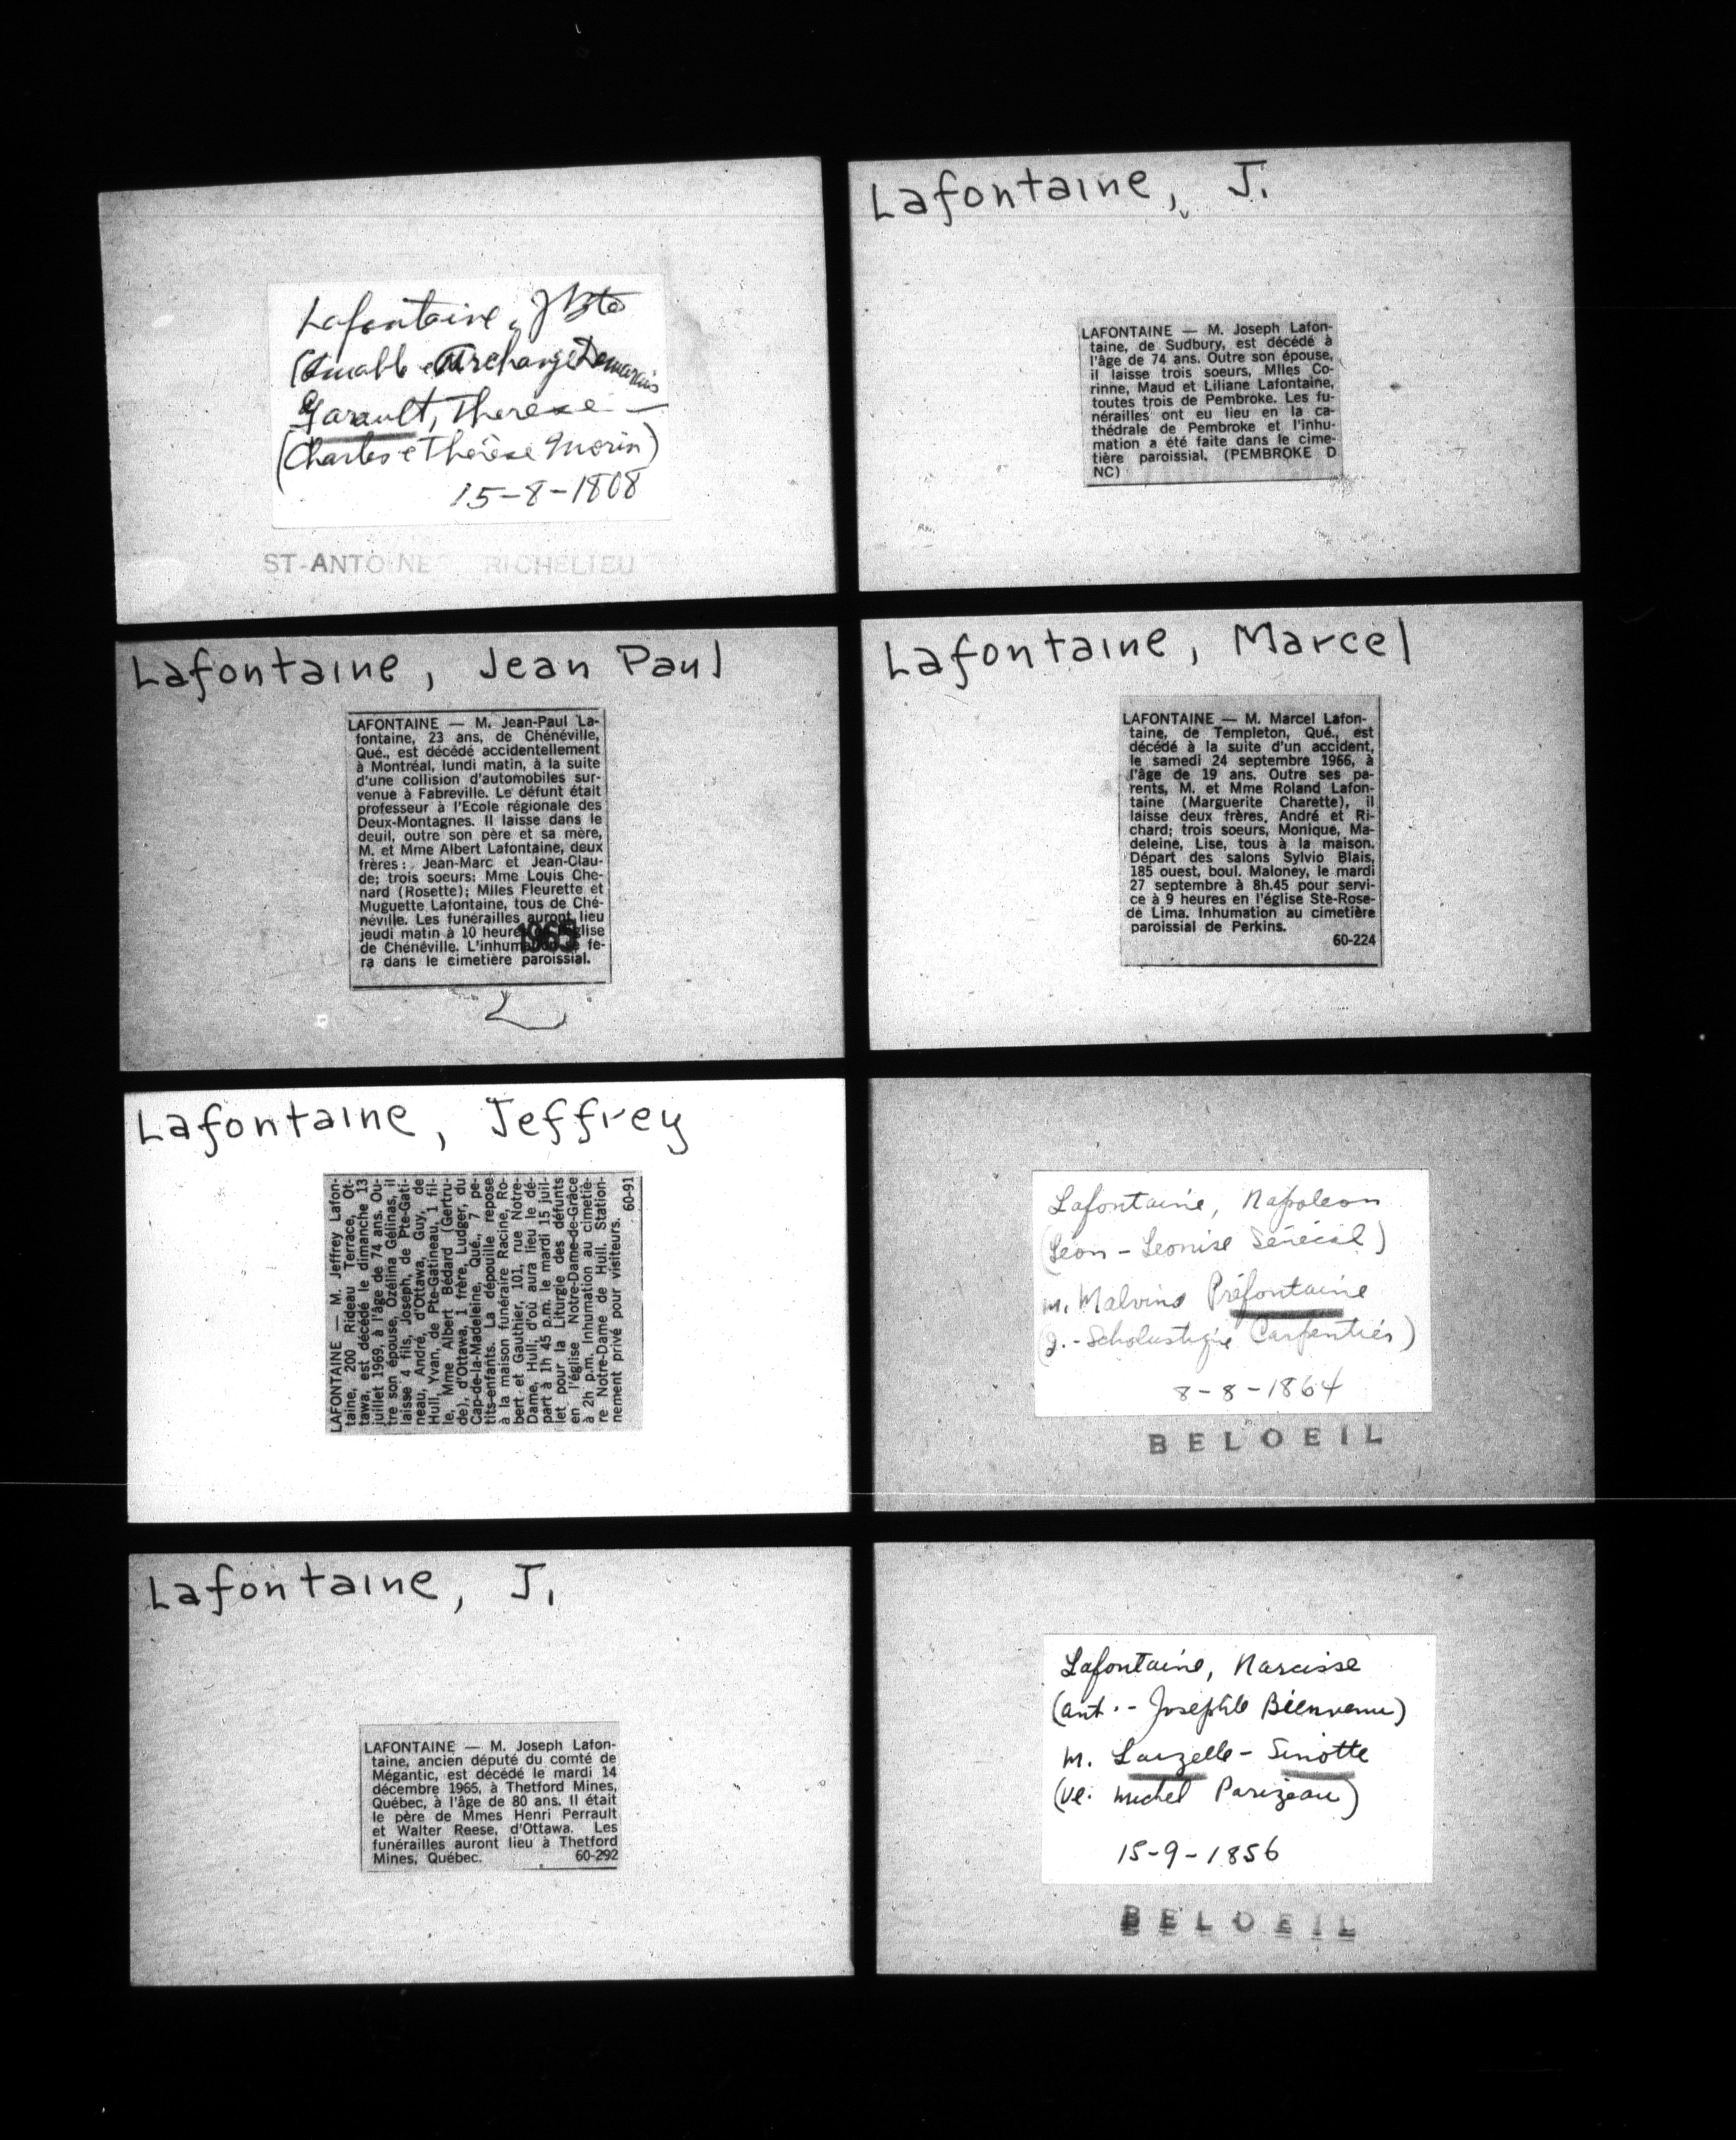 Lafontaine, J Bte
(Amable et Archange Demarais
Garault, Therese —
(Charles et Thérèse Morin)
15-8-1808
ST-ANTOINE RICHELIEU
Lafontaine, J.
LAFONTAINE — M. Joseph Lafon-
taine, de Sudbury, est décédé à
l'âge de 74 ans. Outre son épouse,
il laisse trois soeurs, Mlles Co-
rinne, Maud et Liliane Lafontaine,
toutes trois de Pembroke. Les fu-
nérailles ont eu lieu en la ca-
thédrale de Pembroke et l'inhu-
mation a été faite dans le cime-
tière paroissial. (PEMBROKE D
NC)
Lafontaine, Jean Paul
LAFONTAINE — M. Jean-Paul La-
fontaine, 23 ans, de Chénéville,
Qué., est décédé accidentellement
à Montréal, lundi matin, à la suite
d'une collision d'automobiles sur-
venue à Fabreville. Le défunt était
professeur à l'Ecole régionale des
Deux-Montagnes. Il laisse dans le
deuil, outre son père et sa mère,
M. et Mme Albert Lafontaine, deux
frères: Jean-Marc et Jean-Clau-
de; trois soeurs: Mme Louis Che-
nard (Rosette); Mlles Fleurette et
Muguette Lafontaine, tous de Ché-
néville. Les funérailles auront lieu
jeudi matin à 10 heures église
de Chénéville. L'inhumation se fe-
ra dans le cimetière paroissial.
1965
Lafontaine, Marcel
LAFONTAINE — M. Marcel Lafon-
taine, de Templeton, Qué., est
décédé à la suite d'un accident,
le samedi 24 septembre 1966, à
l'âge de 19 ans. Outre ses pa-
rents, M. et Mme Roland Lafon-
taine (Marguerite Charette), il
laisse deux frères, André et Ri-
chard; trois soeurs, Monique, Ma-
deleine, Lise, tous à la maison.
Départ des salons Sylvio Blais,
185 ouest, boul. Maloney, le mardi
27 septembre à 8h.45 pour servi-
ce à 9 heures en l'église Ste-Rose-
de Lima. Inhumation au cimetière
paroissial de Perkins.
60-224
Lafontaine, Jeffrey
LAFONTAINE — M. Jeffrey Lafon-
taine, 200 Rideau Terrace, Ot-
tawa, est décédé le dimanche 13
juillet 1969, à l'âge de 74 ans. Ou-
tre son épouse, Ozélina Gélinas, il
laisse 4 fils, Joseph, de Pte-Gati-
neau, André, d'Ottawa, Guy, de
Hull, Yvan, de Pte-Gatineau, 1 fil-
le, Mme Albert Bédard (Gertru-
de), d'Ottawa, 1 frère, Ludger, du
Cap-de-la-Madeleine, Qué., 7 pe-
tits-enfants. La dépouille repose
à la maison funéraire Racine, Ro-
bert et Gauthier, 101, rue Notre-
Dame, Hull, d'où aura lieu le dé-
part à 1h 45 p.m. le mardi 15 juil-
let pour la Liturgie des défunts
en l'église Notre-Dame-de-Grâce
à 2h p.m. Inhumation au cimetiè-
re Notre-Dame de Hull. Station-
nement privé pour visiteurs.
60-91
Lafontaine, Napoleon
(Leon - Leonise Sénécal)
m. Malvina Préfontaine
(J. - Scholastique Carpentier)
8-8-1864
BELOEIL
Lafontaine, J.
LAFONTAINE — M. Joseph Lafon-
taine, ancien député du comté de
Mégantic, est décédé le mardi 14
décembre 1965, à Thetford Mines,
Québec, à l'âge de 80 ans. Il était
le père de Mmes Henri Perrault
et Walter Reese, d'Ottawa. Les
funérailles auront lieu à Thetford
Mines, Québec. 60-292
Lafontaine, Narcisse
(ant. - Josephte Bienvenu)
m. Lauzelle - Sinotte
(Ve. Michel Parizeau)
15-9-1856
BELOEIL